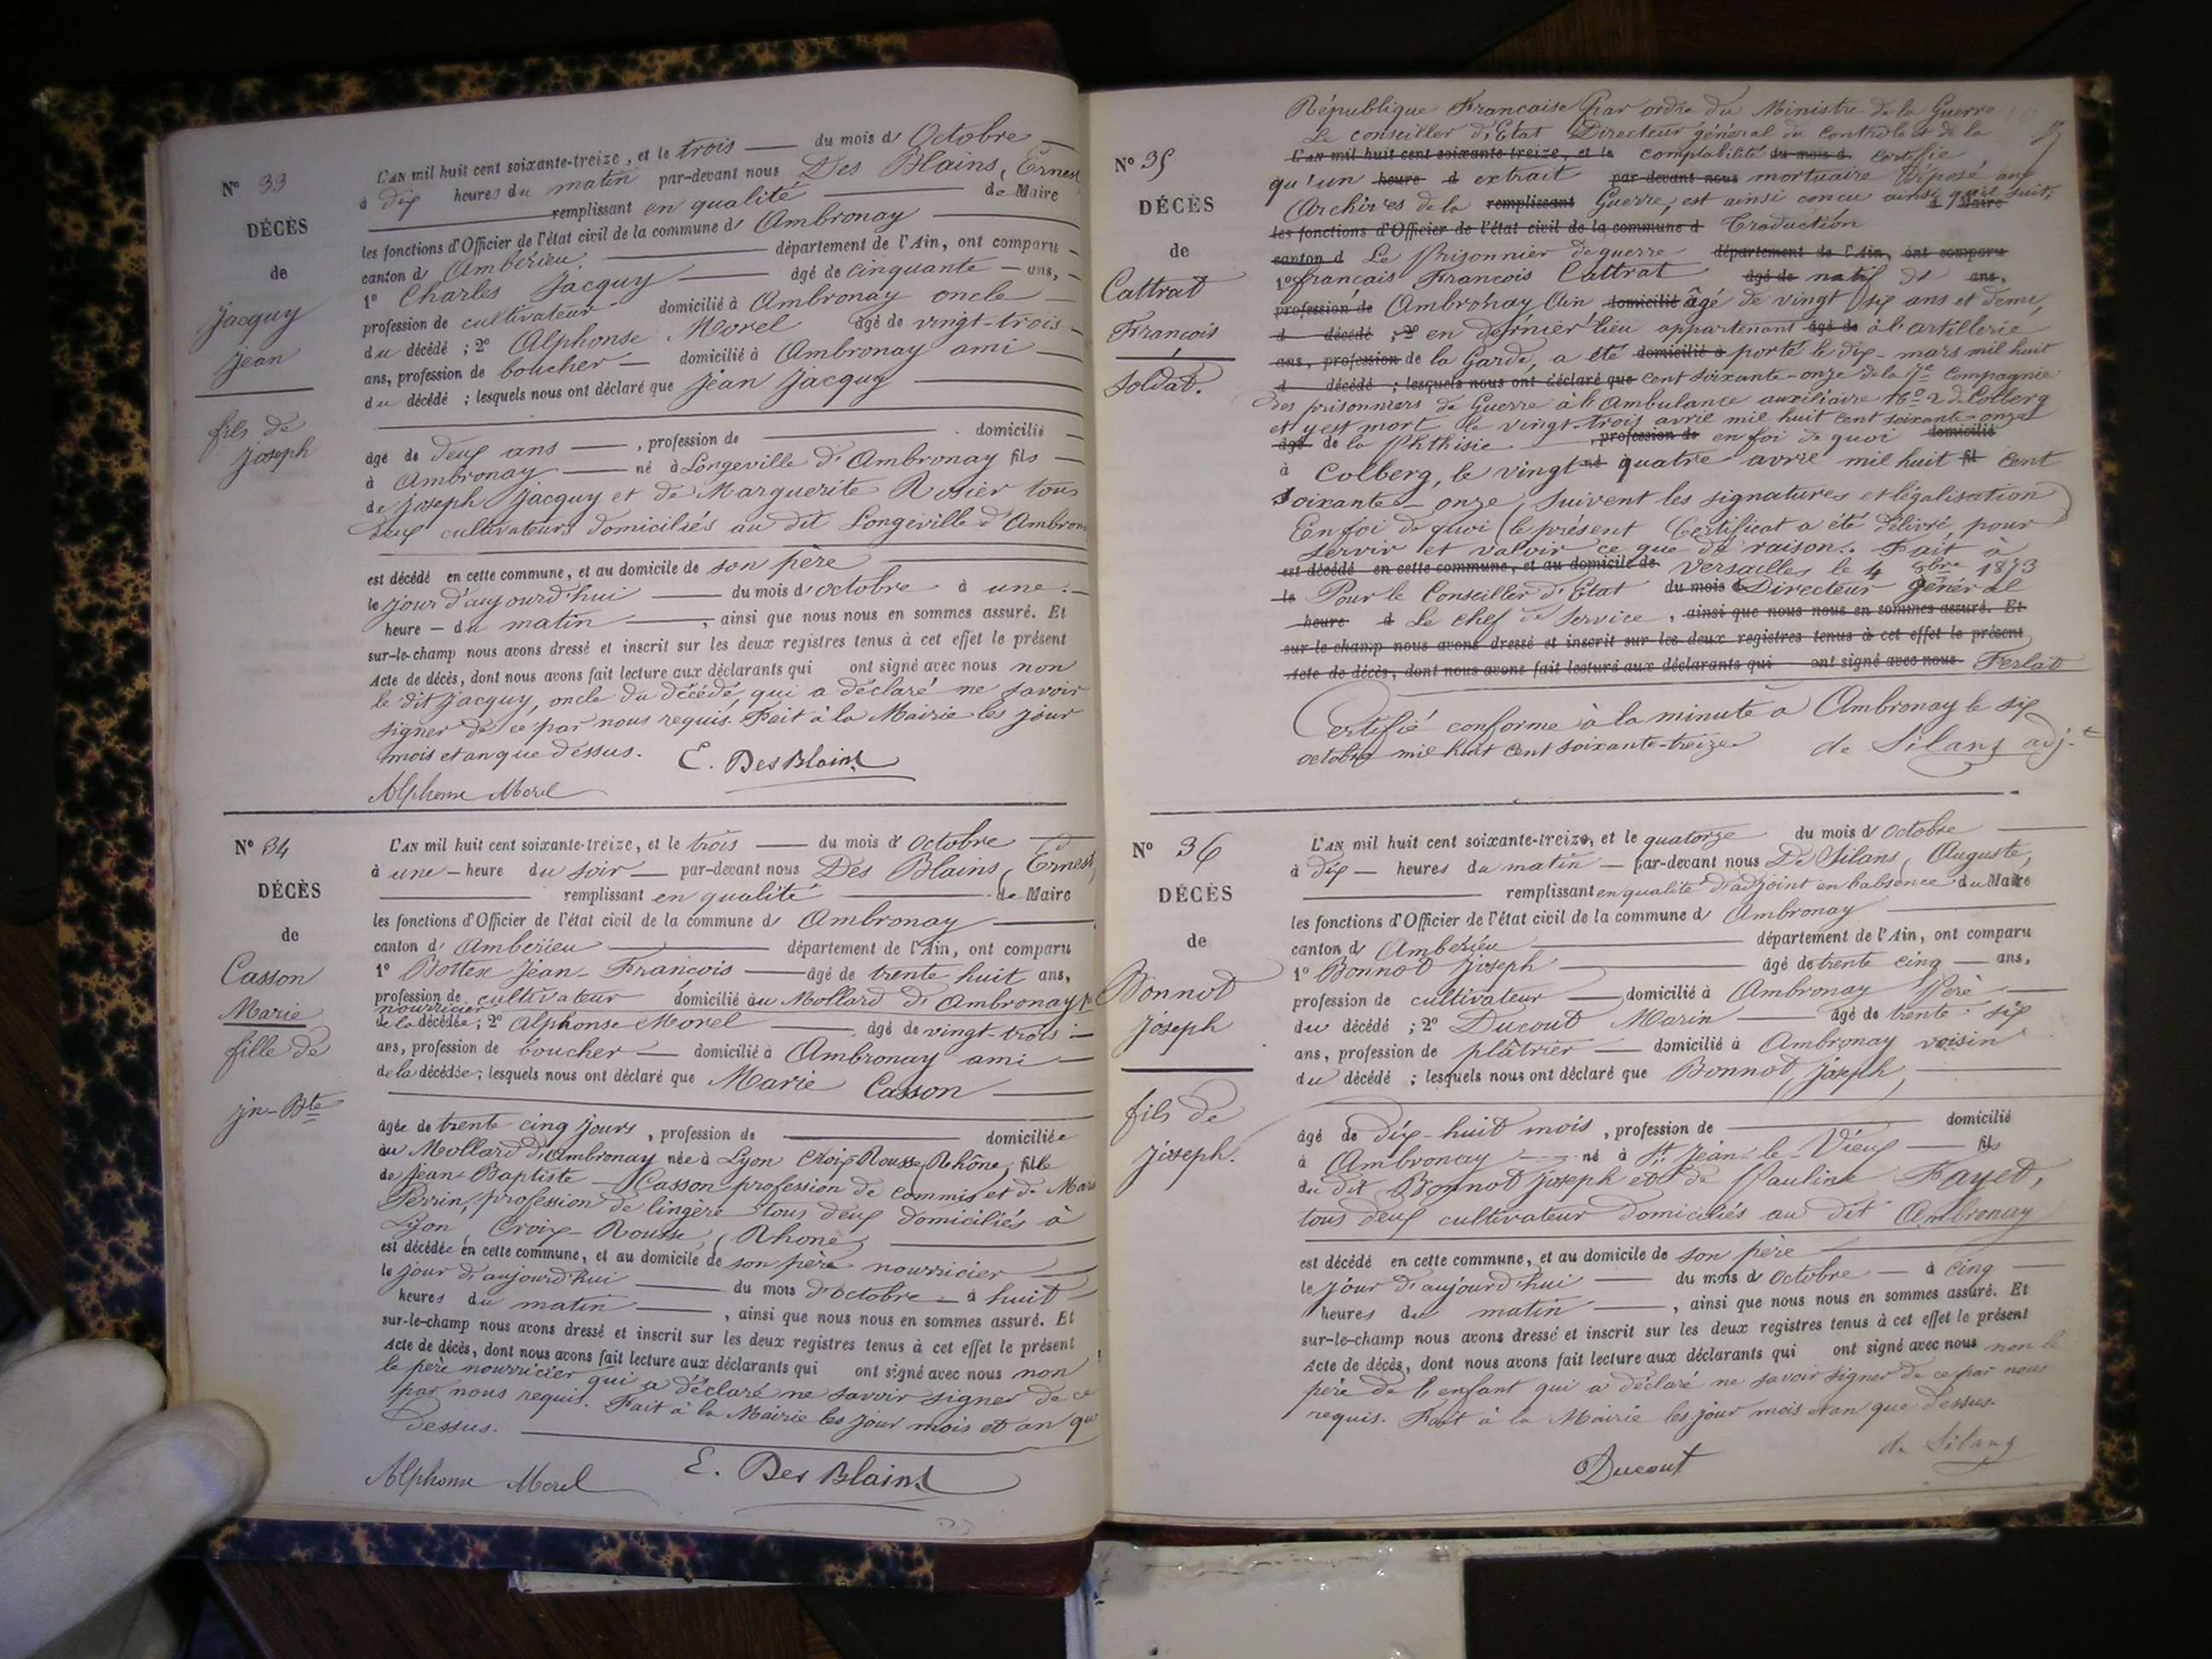 N° 33
DÉCÈS
de
Jacquy
Jean
fils de
Joseph
L'AN mil huit cent soixante-treize, et le trois du mois d'Octobre
à dix heures du matin par-devant nous Des Blains, Ernest
remplissant en qualité de Maire
les fonctions d'Officier de l'état civil de la commune d'Ambronay
canton d'Ambérieu département de l'Ain, ont comparu
1° Charles Jacquy âgé de cinquante ans,
profession de cultivateur domicilié à Ambronay oncle
du décédé ; 2° Alphonse Morel âgé de vingt-trois
ans, profession de boucher domicilié à Ambronay ami
du décédé ; lesquels nous ont déclaré que Jean Jacquy
âgé de deux ans, profession de domicilié
à Ambronay né à Longeville d'Ambronay fils
de Joseph Jacquy et de Marguerite Rosier tous
deux cultivateurs domiciliés au dit Longeville d'Ambron
est décédé en cette commune, et au domicile de son père
le jour d'aujourd'hui du mois d'octobre à une
heure du matin, ainsi que nous nous en sommes assuré. Et
sur-le-champ nous avons dressé et inscrit sur les deux registres tenus à cet effet le présent
Acte de décès, dont nous avons fait lecture aux déclarants qui ont signé avec nous non
le dit Jacquy, oncle du décédé, qui a déclaré ne savoir
signer de ce par nous requis. Fait à la Mairie les jour
mois et an que dessus. E. Des Blains
Alphonse Morel
N° 34
DÉCÈS
de
Casson
Marie
fille de
Jn-Bte
L'AN mil huit cent soixante-treize, et le trois du mois d'octobre
à une heure du soir par-devant nous Des Blains, Ernest,
remplissant en qualité de Maire
les fonctions d'Officier de l'état civil de la commune d'Ambronay
canton d'Ambérieu département de l'Ain, ont comparu
1° Bottex Jean-François âgé de trente huit ans,
profession de cultivateur domicilié au Mollard d'Ambronay p
nourricier
de la décédée ; 2° Alphonse Morel âgé de vingt-trois
ans, profession de boucher domicilié à Ambronay ami
de la décédée ; lesquels nous ont déclaré que Marie Casson
âgée de trente cinq jours, profession de domiciliée
au Mollard d'Ambronay née à Lyon Croix Rousse, Rhône, fille
de Jean Baptiste Casson profession de commis et de Mari
Perrin, profession de lingère tous deux domiciliés à
Lyon, Croix-Rousse, (Rhone)
est décédée en cette commune, et au domicile de son père nourricier
le jour d'aujourd'hui du mois d'octobre à huit
heures du matin, ainsi que nous nous en sommes assuré. Et
sur-le-champ nous avons dressé et inscrit sur les deux registres tenus à cet effet le présent
Acte de décès, dont nous avons fait lecture aux déclarants qui ont signé avec nous non
le père nourricier qui a déclaré ne savoir signer de ce
par nous requis. Fait à la Mairie les jour mois et an que
dessus.
Alphonse Morel E. Des Blains
N° 35
DÉCÈS
de
Cattrat
François
Soldat.
République Francaise Par ordre du Ministre de la Guerre
Le conseiller d'Etat Directeur général du Controle et de la
L'AN mil huit cent soixante-treize, et le comptabilité du mois d certifie
qu'un heure d extrait par-devant nous mortuaire déposé aux
Archives de la remplissant Guerre, est ainsi concu ainsi qu'il suit,
d Maire
les fonctions d'Officier de l'état civil de la commune d Traduction
canton d Le Prisonnier de guerre département de l'Ain, ont comparu
1° français François Cattrat âgé de natif de ans,
profession de Ambronay Ain domicilié âgé de vingt six ans et demi,
d décédé ; 2° en dernier lieu appartenant âgé de à l'artillerie
ans, profession de la Garde, a été domicilié à porté le dix-mars mil huit
d décédé ; lesquels nous ont déclaré que cent soixante-onze de la 7e Compagnie
des prisonniers de Guerre à l'Ambulance auxiliaire N° 2 de Colberg
et y est mort le vingt-trois avril mil huit cent soixante-onze
âgé de la Phthisie, profession de en foi de quoi domicilié
à Colberg, le vingt né quatre avril mil huit fil cent
soixante-onze, Suivent les signatures et légalisation
En foi de quoi le présent Certificat a été délivré, pour
servir et valoir ce que de raison. Fait à
est décédé en cette commune, et au domicile de Versailles le 4 8bre 1873
le Pour le Conseiller d'Etat du mois d Directeur général
heure d Le chef de Service, ainsi que nous nous en sommes assuré. Et
sur-le-champ nous avons dressé et inscrit sur les deux registres tenus à cet effet le présent
Acte de décès, dont nous avons fait lecture aux déclarants qui ont signé avec nous Ferlat
Certifié conforme à la minute à Ambronay le six
octobre mil huit cent soixante-treize de Silans adj.t
N° 36
DÉCÈS
de
Bonnot
Joseph
fils de
Joseph.
L'AN mil huit cent soixante-treize, et le quatorze du mois d'Octobre
à dix heures du matin par-devant nous De Silans, Auguste,
remplissant en qualité d'adjoint en l'absence du Maire
les fonctions d'Officier de l'état civil de la commune d'Ambronay
canton d'Ambérieu département de l'Ain, ont comparu
1° Bonnot Joseph âgé de trente cinq ans,
profession de cultivateur domicilié à Ambronay Père
du décédé ; 2° Ducout Marin âgé de trente six
ans, profession de plâtrier domicilié à Ambronay voisin
du décédé ; lesquels nous ont déclaré que Bonnot, Joseph,
âgé de dix-huit mois, profession de domicilié
à Ambronay né à St Jean-le-Vieux fils
du dit Bonnot Joseph et de Pauline Fayet,
tous deux cultivateur domiciliés au dit Ambronay
est décédé en cette commune, et au domicile de son père
le jour d'aujourd'hui du mois d'octobre à cinq
heures du matin, ainsi que nous nous en sommes assuré. Et
sur-le-champ nous avons dressé et inscrit sur les deux registres tenus à cet effet le présent
Acte de décès, dont nous avons fait lecture aux déclarants qui ont signé avec nous non le
père de l'enfant qui a déclaré ne savoir signer de ce par nous
requis. Fait à la Mairie les jour mois et an que dessus.
Ducout de Silans